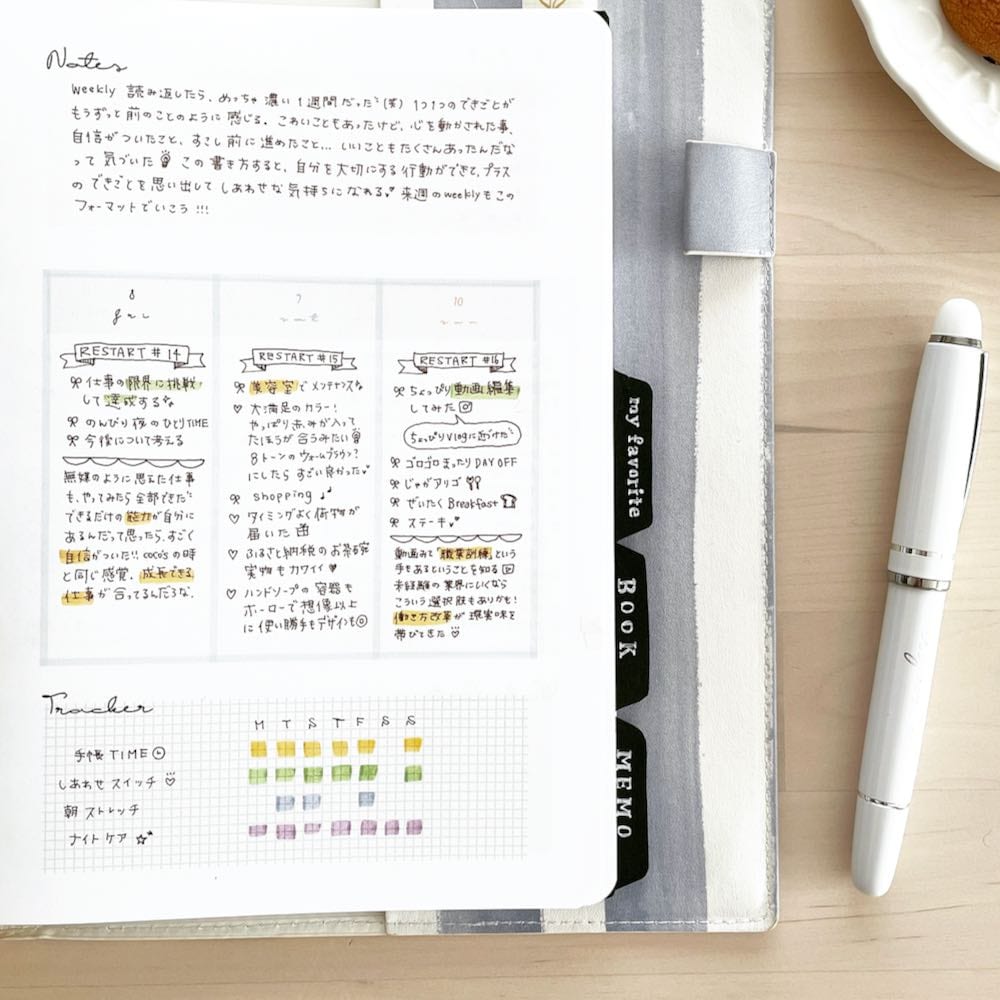 Notes
Weekly 読み返したら、めっちゃ 濃い 1週間だった(笑) 1つ1つのできごとが
もうずっと前のことのように感じる. こわいこともあったけど、心を動かされた事、
自信がついたこと、すこし前に進めたこと… いいこともたくさんあったんだな
って 気づいた この書き方すると、自分を大切にする行動ができて、プラス
の できごとを思い出して しあわせな気持ちになれる♥ 来週のweeklyもこの
フォーマットでいこう !!!
8
fri
RESTART #14
仕事の限界に挑戦
して達成する
のんびり夜のひとりTIME
今後について考える
無謀のように思えた仕事
も、やってみたら全部できた
できるだけの能力が自分に
あるんだって思ったら、すごく
自信がついた!! coco'sの時
と同じ感覚. 成長できる
仕事が合ってるんだろな.
9
sat
RESTART #15
美容室でメンテナンス
♡ 大満足のカラー!
やっぱり赤みが入って
たほうが合うみたい
8トーンのウォームブラウン?
にしたら すごい良かった♥
shopping ♪
♡ タイミングよく荷物が
届いた
♡ ふるさと納税のお茶碗
実物もカワイイ♥
♡ ハンドソープの容器も
ホーローで想像以上
に使い勝手もデザインも◎
10
sun
RESTART #16
ちょっぴり動画編集
してみた
ちょっぴりVlogに近づけた
ゴロゴロまったりDAY OFF
じゃがアリゴ
ぜいたくBreakfast
ステーキ♥
動画みて「職業訓練」という
手もあるということを知る
未経験の業界にいくなら
こういう選択肢もありかも!
働き方改革が現実味を
帯びてきた ♡
Tracker
M T S T F S S
手帳TIME
しあわせスイッチ ♡
朝ストレッチ
ナイトケア ☆
my favorite
BOOK
MEMO